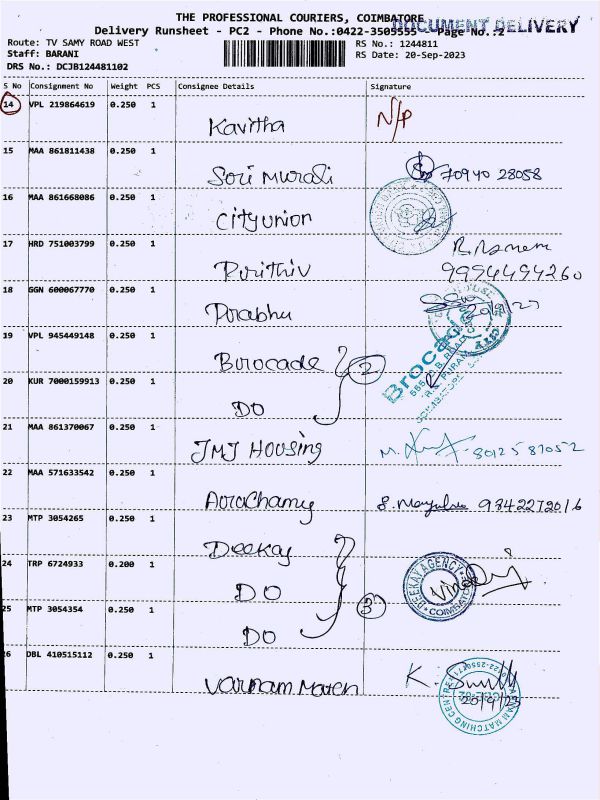 THE PROFESSIONAL COURIERS, COIMBATORE
DOCUMENT DELIVERY
Delivery Runsheet - PC2 - Phone No.:0422-3505555 Page No.:2
Route: TV SAMY ROAD WEST RS No.: 1244811
Staff: BARANI RS Date: 20-Sep-2023
DRS No.: DCJB124481102
S No Consignment No Weight PCS Consignee Details Signature
14 VPL 219864619 0.250 1
Kavitha N/P
15 MAA 861811438 0.250 1
Sori Murali 70940 28058
16 MAA 861668086 0.250 1
City union
17 HRD 751003799 0.250 1
Pirithiv 9994494260
18 GGN 600067770 0.250 1
Prabhu 20/9/23
19 VPL 945449148 0.250 1
Borocade 2
Brocade
20 KUR 7000159913 0.250 1
DO
21 MAA 861370067 0.250 1
JMJ Housing 8012587052
22 MAA 571633542 0.250 1
23 MTP 3054265 0.250 1
Deekay
24 TRP 6724933 0.200 1
DO 3
DEEKAY AGENCY
COIMBATORE
25 MTP 3054354 0.250 1
DO
26 DBL 410515112 0.250 1
Varnam Match
20/9/23